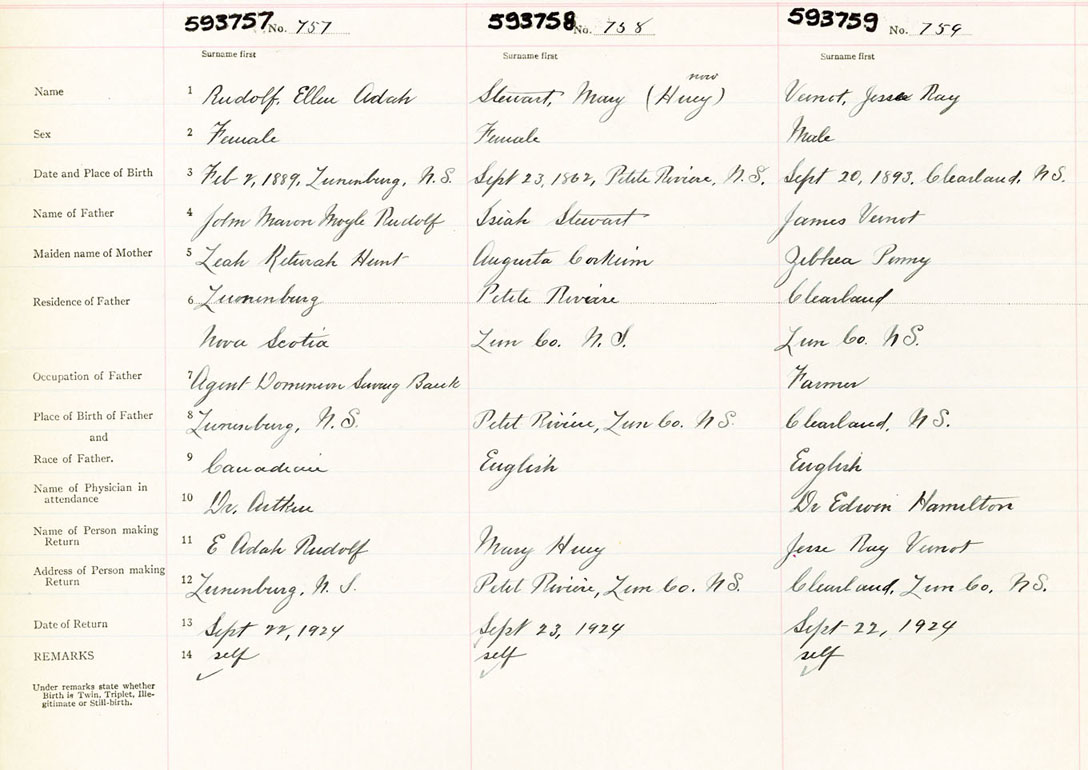 593757 No. 757 593758 No. 758 593759 No. 759
Surname first Surname first Surname first
now
Name 1 Rudolf, Ellen Adah Stewart, Mary (Huey) Vernot, Jesse Ray
Sex 2 Female Female Male
Date and Place of Birth 3 Feb 2, 1889, Lunenburg, N.S. Sept 23, 1862, Petite Riviere, N.S. Sept 20, 1893, Clearland, N.S.
Name of Father 4 John Mason Moyle Rudolf Isiah Stewart James Vernot
Maiden name of Mother 5 Leah Keturah Hunt Augusta Corkum Penny
Residence of Father 6 Lunenburg Petite Riviere Clearland
Nova Scotia Lun Co. N.S. Lun Co. N.S.
Occupation of Father 7 Agent Dominion Saving Bank Farmer
Place of Birth of Father 8 Lunenburg, N.S. Petit Riviere, Lun Co. N.S. Clearland, N.S.
and
Race of Father. 9 Canadian English English
Name of Physician in
attendance 10 Dr. Aitken Dr Edwin Hamilton
Name of Person making
Return 11 E Adah Rudolf Mary Huey Jesse Ray Vernot
Address of Person making
Return 12 Lunenburg, N.S. Petit Riviere, Lun Co. N.S. Clearland, Lun Co, N.S.
Date of Return 13 Sept 22, 1924 Sept 23, 1924 Sept 22, 1924
REMARKS 14 self self self
Under remarks state whether
Birth is Twin, Triplet, Ille-
gitimate or Still-birth.